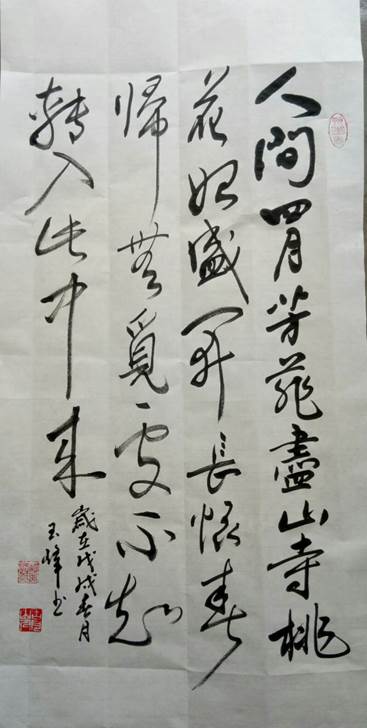 人間四月芳菲盡山寺桃
花始盛開長恨春
歸無覓處不知
轉入此中来
歲在戊戌春月
玉峰书